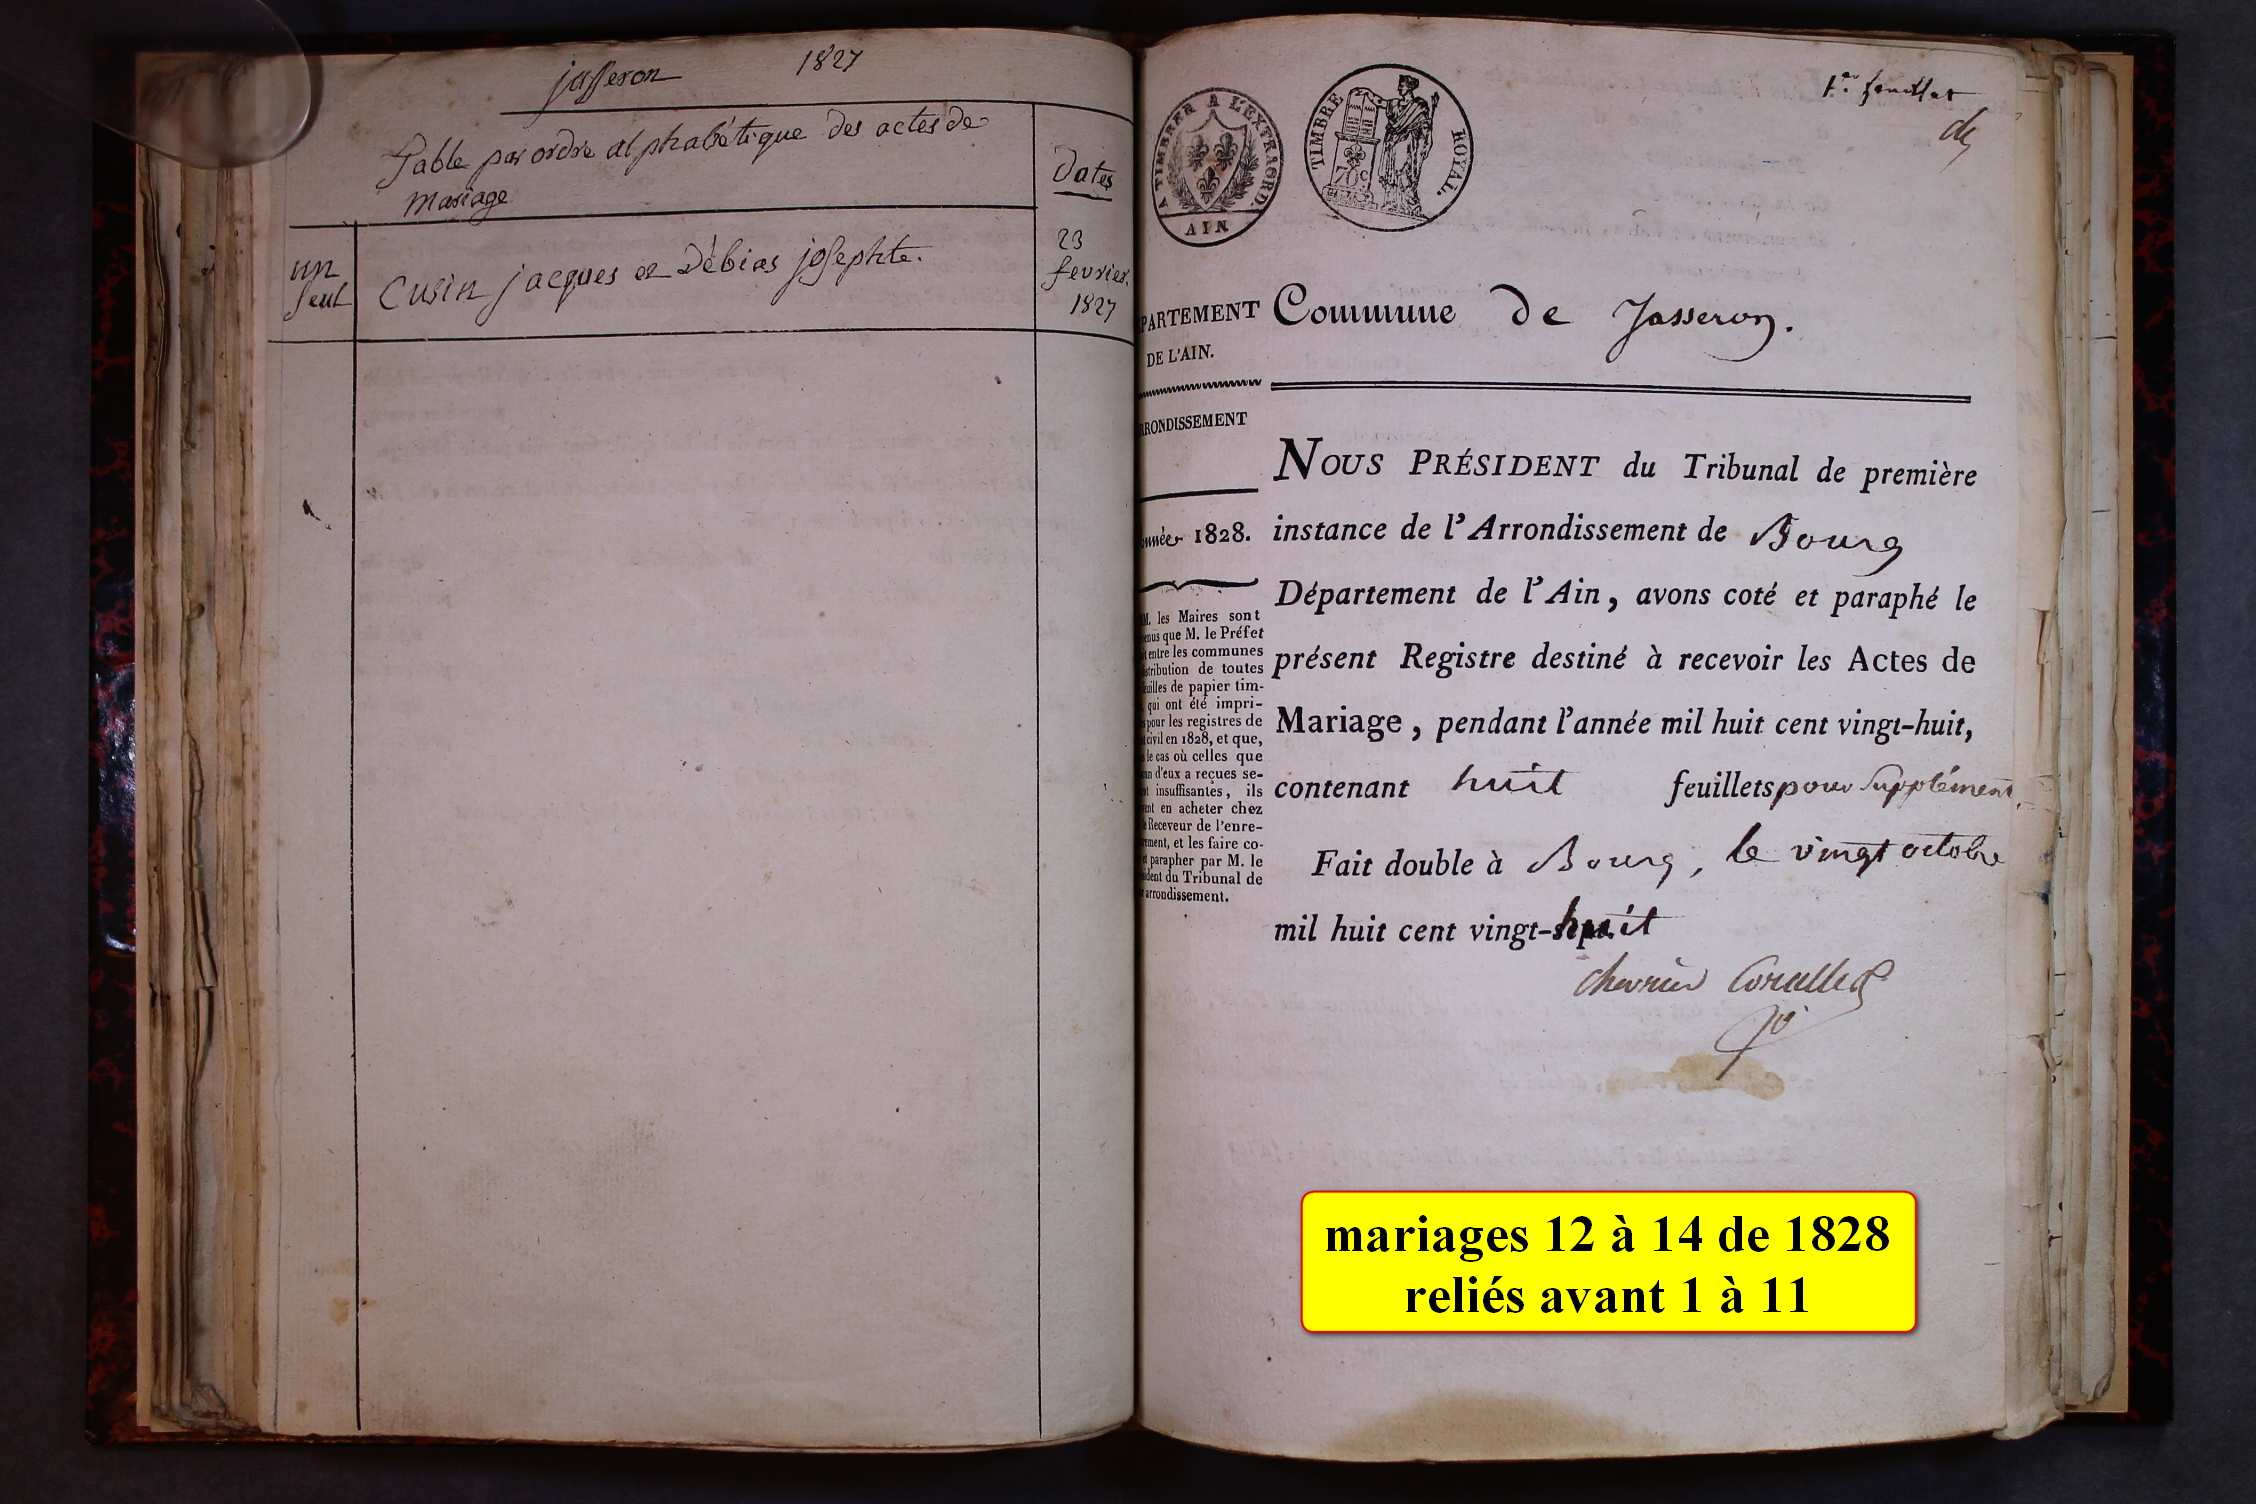 jasseron 1827
Table par ordre alphabétique des actes de
mariage
Dates
un
seul
Cusin jacques et Débias josephte.
23
fevrier.
1827
1er feuillet
A TIMBRER A L'EXTRAORD.
AIN
TIMBRE ROYAL.
70c
PARTEMENT
DE L'AIN.
RRONDISSEMENT
année 1828.
M. les Maires sont
enus que M. le Préfet
it entre les communes
stribution de toutes
euilles de papier tim-
, qui ont été impri-
s pour les registres de
t civil en 1828, et que,
s le cas où celles que
un d'eux a reçues se-
nt insuffisantes, ils
ent en acheter chez
e Receveur de l'enre-
rement, et les faire co-
et parapher par M. le
sident du Tribunal de
r arrondissement.
Commune de Jasseron.
NOUS PRÉSIDENT du Tribunal de première
instance de l'Arrondissement de Bourg
Département de l'Ain, avons coté et paraphé le
présent Registre destiné à recevoir les Actes de
Mariage, pendant l'année mil huit cent vingt-huit,
contenant huit feuillets pour supplément.
Fait double à Bourg, le vingt octobre
mil huit cent vingt-huit
mariages 12 à 14 de 1828
reliés avant 1 à 11